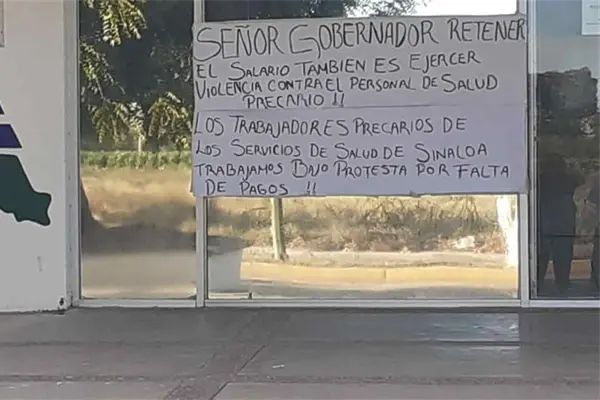 SEÑOR GOBERNADOR RETENER
EL SALARIO TAMBIEN ES EJERCER
VIOLENCIA CONTRA EL PERSONAL DE SALUD
PRECARIO !!
LOS TRABAJADORES PRECARIOS DE
LOS SERVICIOS DE SALUD DE SINALOA
TRABAJAMOS BAJO PROTESTA POR FALTA
DE PAGOS !!